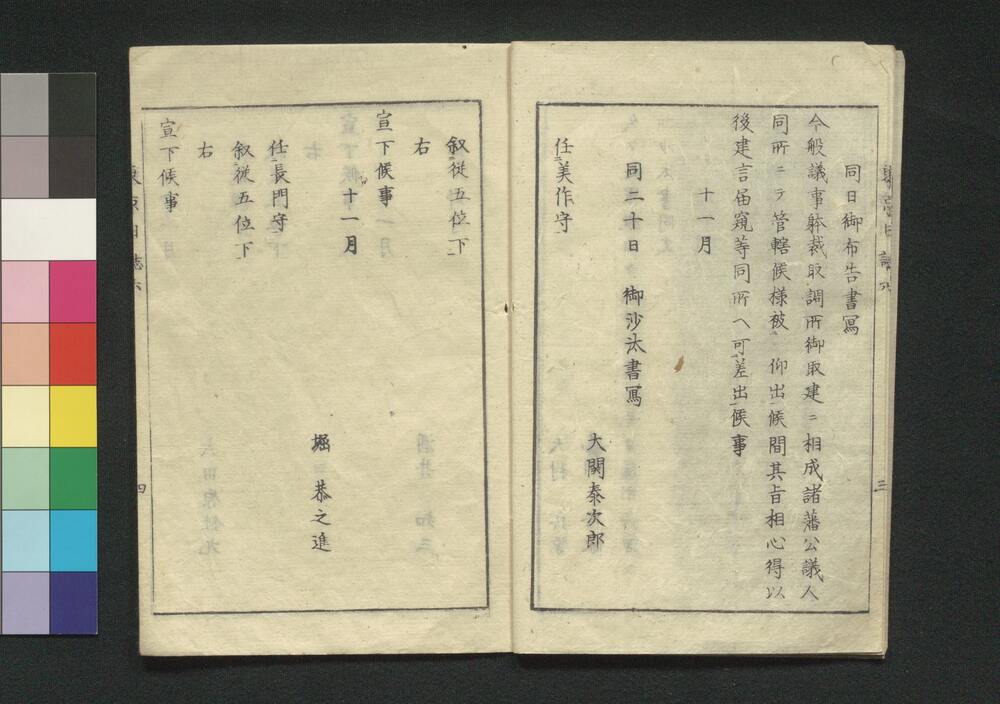 同日御布告書寫
今般議事躰裁取調所御取建ニ相成諸藩公議人
同所ニテ管轄候様被 仰出候間其旨相心得以
後建言届窺等同所ヘ可差出候事
十一月
同二十日 御沙汰書寫
大関泰次郎
任美作守
三
叙從五位下
右
宣下候事
十一月
堀 恭之進
任長門守
叙從五位下
右
宣下候事
四